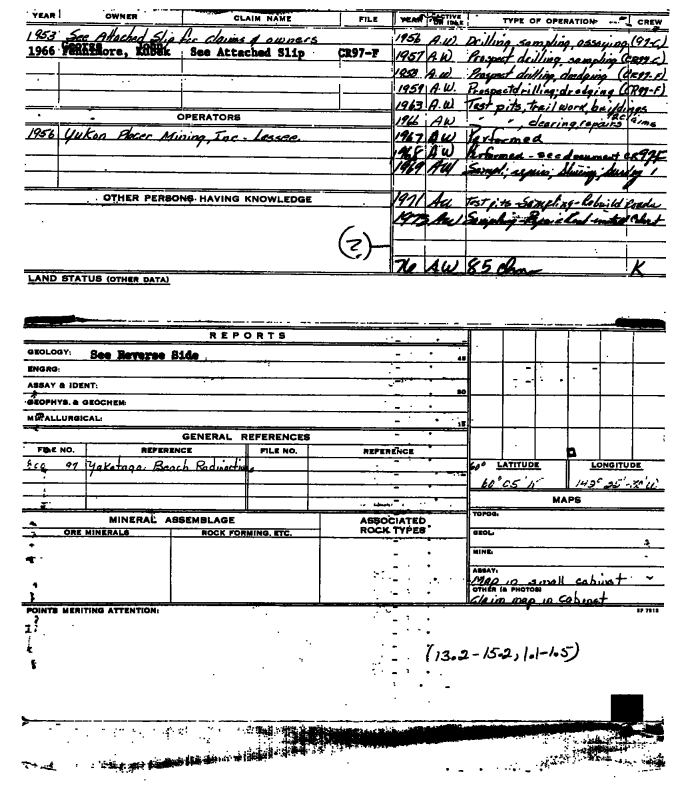 YEAR OWNER CLAIM NAME FILE YEAR ACTIVE OR IDLE TYPE OF OPERATION CREW
1953 See Attached Slip for claims & owners
1966 George Fennimore, Kubek See Attached Slip CR97-F
1956 A.W. Drilling, sampling, assaying (97-C)
1957 A.W. Prospect drilling, sampling (CR97-C)
1958 A.W. Prospect drilling, dredging (CR97-E)
1959 A.W. Prospect drilling; dredging (CR97-F)
1963 A.W. Test pits, trail work, buildings
OPERATORS
1966 AW " " , clearing, repairs claims
1956 Yukon Placer Mining, Inc - Lessee.
1967 AW Performed
1968 AW Performed - see document CR97F
1969 AW Sampl; repair,
OTHER PERSONS HAVING KNOWLEDGE
1971 AW Test pits - Sampling - Rebuild Roads
1973 AW Sampling - Repair Road
(?)
76 AW 85 K
LAND STATUS (OTHER DATA)
REPORTS
GEOLOGY: See Reverse Side
ENGRG:
ASSAY & IDENT:
GEOPHYS. & GEOCHEM:
METALLURGICAL:
45
30
15
GENERAL REFERENCES
FILE NO. REFERENCE FILE NO. REFERENCE
97 Yakataga Beach Radioactive
60° LATITUDE LONGITUDE
60° 05' N 142° 25'-30' W
MAPS
MINERAL ASSEMBLAGE ASSOCIATED ROCK TYPES
ORE MINERALS ROCK FORMING, ETC.
TOPOG:
GEOL:
MINE:
ASSAY:
Map in small cabinet
OTHER (& PHOTOS)
Claim map in Cabinet
POINTS MERITING ATTENTION:
(13.2-15.2, 1.1-1.5)